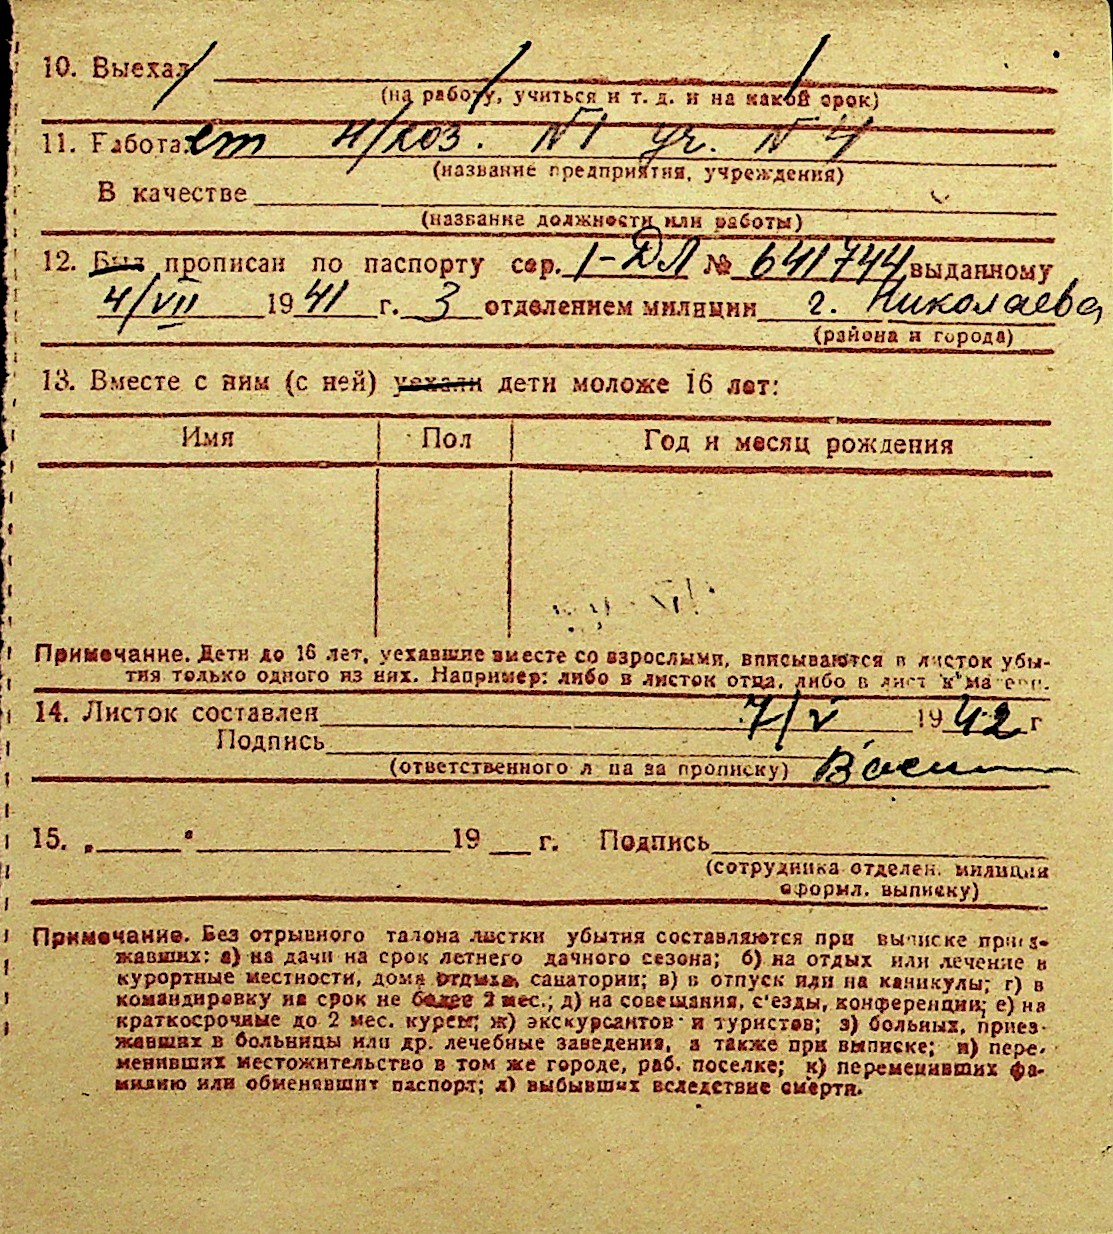 10. Выехал
(на работу, учиться и т. д. и на какой срок)
11. Работает к/хоз. №1 уч. №4
(название предприятия, учреждения)
В качестве
(название должности или работы)
12. Был прописан по паспорту сер. I-ДЛ № 641744 выданному
4/VII 1941 г. 3 отделением милиции г. Николаева
(района и города)
13. Вместе с ним (с ней) уехали дети моложе 16 лет:
Имя Пол Год и месяц рождения
Примечание. Дети до 16 лет, уехавшие вместе со взрослыми, вписываются в листок убы-
тия только одного из них. Например: либо в листок отца, либо в лист к матери.
14. Листок составлен 7/V 1942 г
Подпись
(ответственного л ца за прописку)
15. „ " 19 г. Подпись
(сотрудника отделен. милиции
оформл. выписку)
Примечание. Без отрывного талона листки убытия составляются при выписке приез-
жавших: а) на дачи на срок летнего дачного сезона; б) на отдых или лечение в
курортные местности, дома отдыха, санатории; в) в отпуск или на каникулы; г) в
командировку на срок не более 2 мес.; д) на совещания, с'езды, конференции; е) на
краткосрочные до 2 мес. курсы; ж) экскурсантов и туристов; з) больных, приез-
жавших в больницы или др. лечебные заведения, а также при выписке; и) пере-
менивших местожительство в том же городе, раб. поселке; к) переменивших фа-
милию или обменявших паспорт; л) выбывших вследствие смерти.